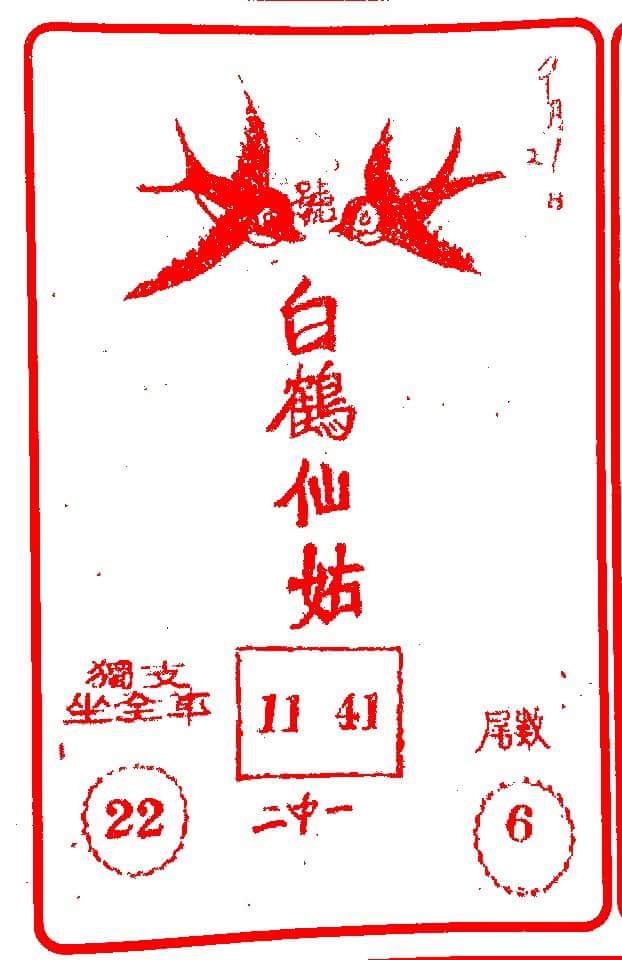 月21日
號
白鶴仙姑
獨支
坐全車
11 41
尾數
22
二中一
6